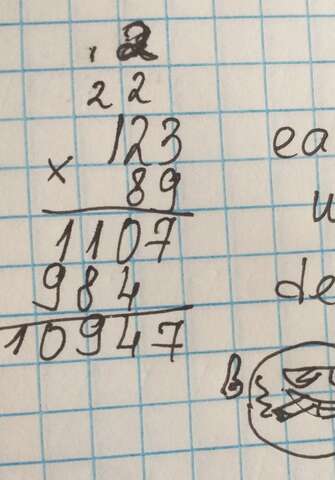 2
2 2
123
× 89
1107
984
10947
ea
de
в